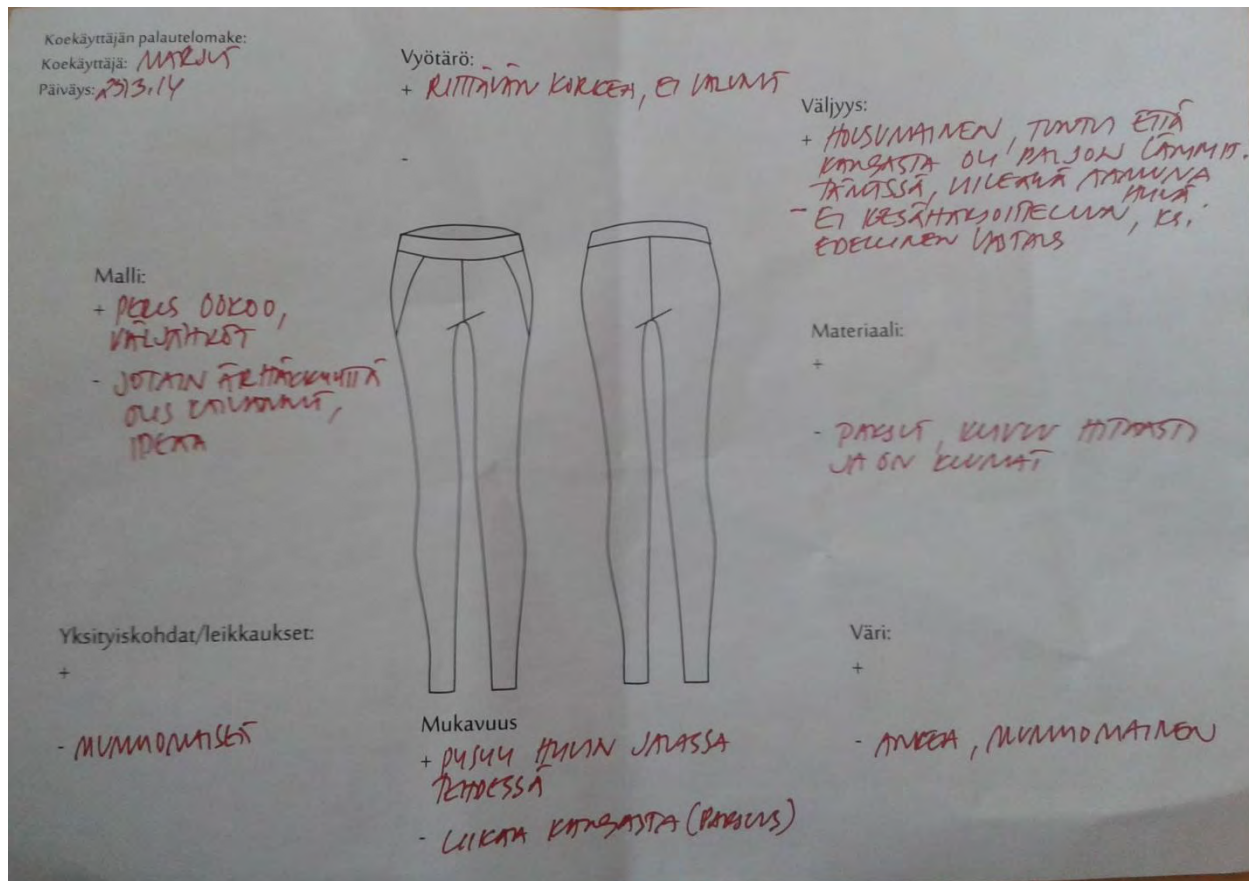 Koekäyttäjän palautelomake:
Koekäyttäjä: MARJUT
Päiväys: 23/3.14
Vyötärö:
+ RIITTÄVÄN KORKEA, EI VALUNUT
-
Väljyys:
+ HOUSUMAINEN, TUNTU ETTÄ
KANGASTA OLI PALJON LÄMMIT-
TÄMÄSSÄ, VILEÄNÄ AAMUNA
HYVÄ
- EI KESÄHARJOITTELUUN, KS.
EDELLINEN VASTAUS
Malli:
+ PERUS OOKOO,
VÄLJÄHKÖT
- JOTAIN ÄRHÄKKYYTTÄ
OLIS KAIVANNUT,
IDEAA
Materiaali:
+
- PAKSUT, KUIVUU HITAASTI
JA ON KUUMAT
Yksityiskohdat/leikkaukset:
+
- MUMMOMAISET
Mukavuus
+ PYSYY HYVIN JALASSA
TEHDESSÄ
- LIIKAA KANGASTA (PAKSUUS)
Väri:
+
- ANKEA, MUMMOMAINEN